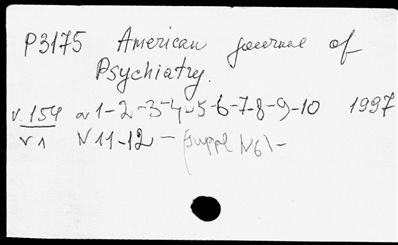 P3175 American journal of
Psychiatry.
v. 154 N 1-2-3-4-5-6-7-8-9-10 1997
v 1 N 11-12 - (suppl N6) -